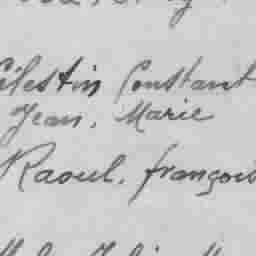 Célestin Constant
Jean, Marie
Raoul, françois